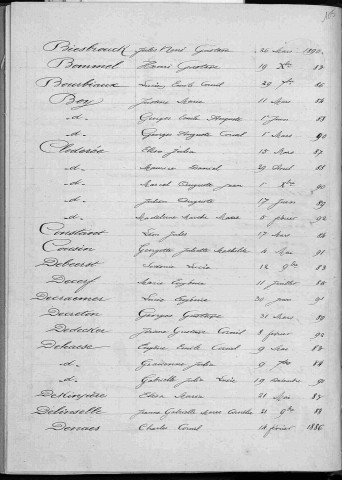 Jules René Gustave 26 Mars 1890
Bommel Henri Gustave 19 Xbre 82
Bourbiaux Lucien Emile Cornil 29 86
Bey Suzanne Maria 11 Mars 84
-d- Georges Emile Auguste 1er Juin 88
-d- Georges Auguste Cornil 5 Mars 90
Elisa Julia 15 Mars 87
-d- Maurice Daniel 29 Avril 88
-d- Marcel Auguste Jean 1er Xbre 90
-d- Julien Auguste 17 Juin 89
-d- Madeleine Marthe Marie 5 février 92
Constant Léon Jules 17 Mars 86
Cousin Georgette Juliette Mathilde 4 Mai 91
Suzanne Lucie 12 9bre 83
Decorf Marie Eugénie 11 juillet 86
Decraemer Lucie Eugénie 20 juin 91
Decreton Georges Gustave 31 Mars 89
Dedecker Jeanne Gustave Cornil 8 février 92
Dehaese Eugène Emile Cornil 9 Mai 82
-d- Julia 9 84
-d- Gabrielle Julia Lucie 19 Décembre 91
Elisa Maria 21 Mai 87
Delinselle Jeanne Gabrielle Marie 21 9bre 88
Denaes Charles Cornil 14 février 1886